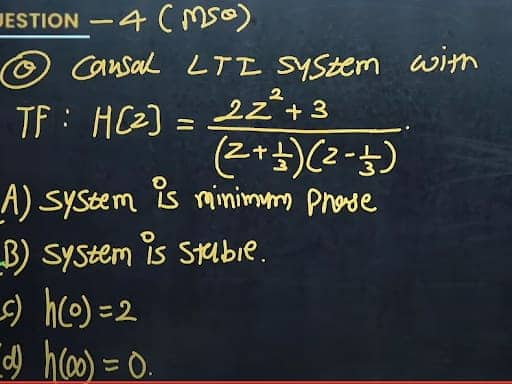 UESTION - 4 (MSQ)
Q Causal LTI System with
TF : H(z) = 2z²+3 / (z+1/3)(z-1/3)
A) System is minimum phase
B) System is stable.
c) h(0) = 2
d) h(∞) = 0.